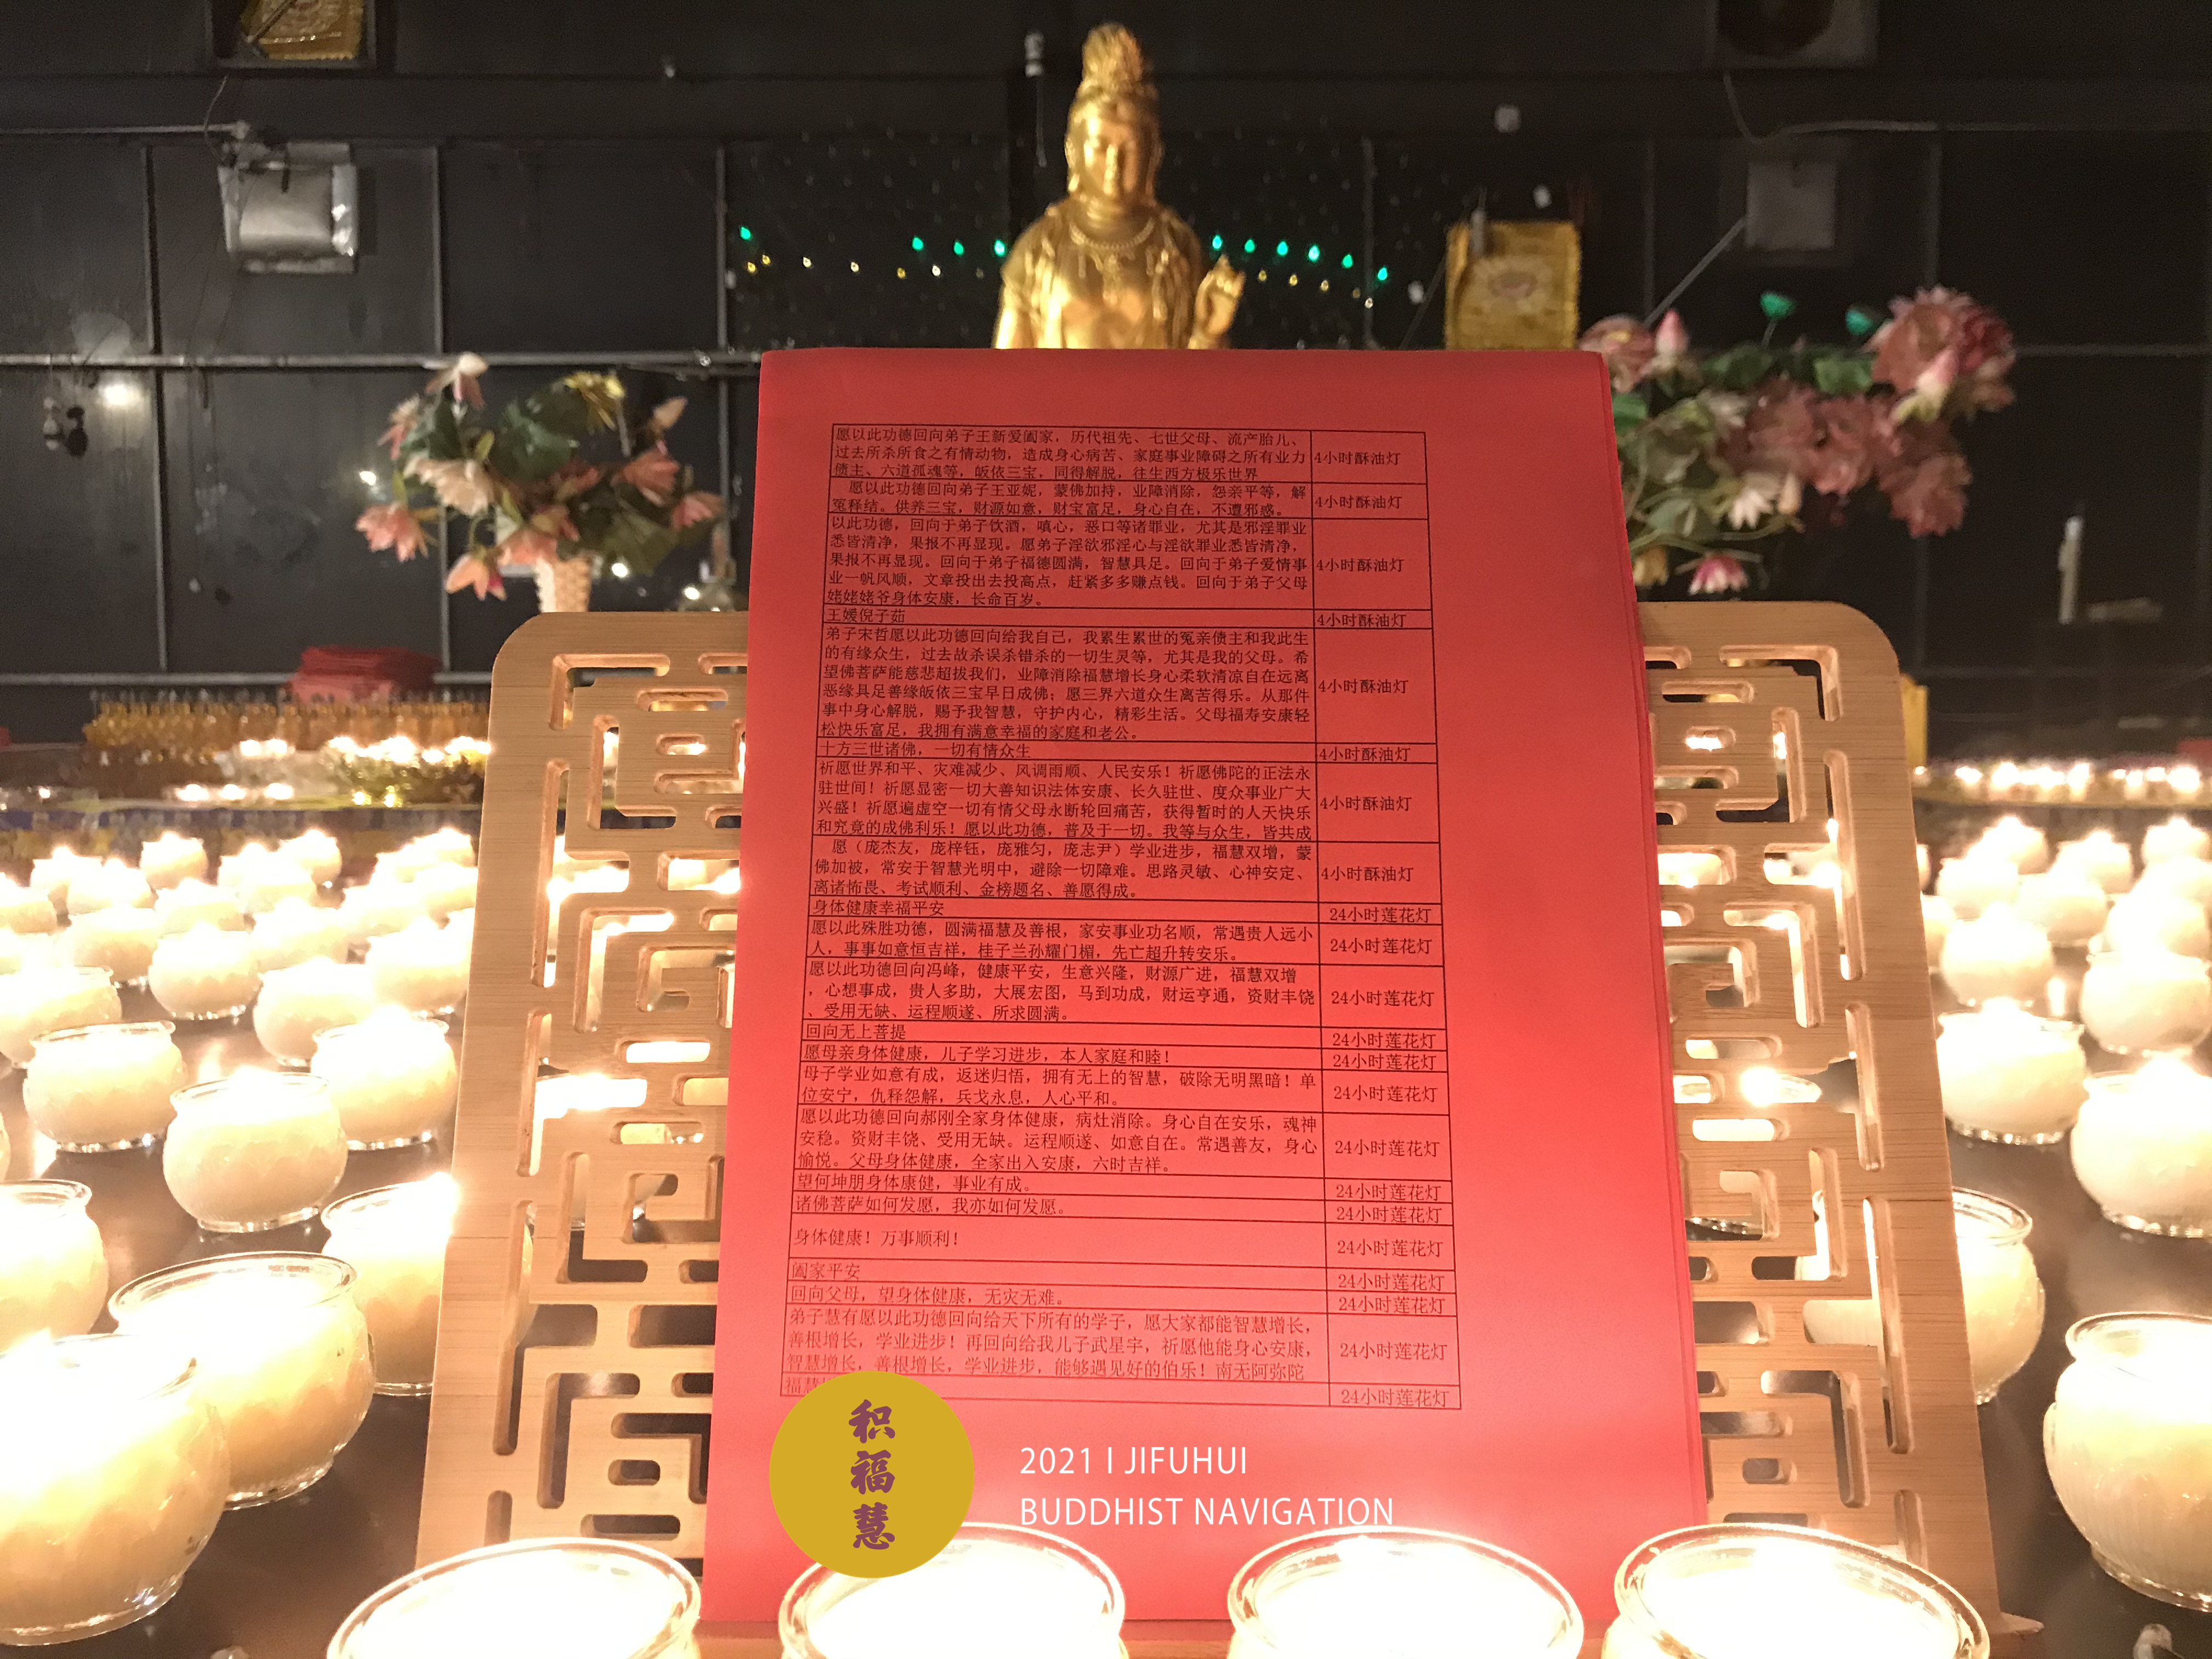 愿以此功德回向弟子王新爱阖家，历代祖先、七世父母、流产胎儿、
过去所杀所食之有情动物，造成身心病苦、家庭事业障碍之所有业力
债主、六道孤魂等，皈依三宝，同得解脱，往生西方极乐世界
4小时酥油灯
愿以此功德回向弟子王亚妮，蒙佛加持，业障消除，怨亲平等，解
冤释结。供养三宝，财源如意，财宝富足，身心自在，不遭邪惑。
4小时酥油灯
以此功德，回向于弟子饮酒，嗔心，恶口等诸罪业，尤其是邪淫罪业
悉皆清净，果报不再显现。愿弟子淫欲邪淫心与淫欲罪业悉皆清净，
果报不再显现。回向于弟子福德圆满，智慧具足。回向于弟子爱情事
业一帆风顺，文章投出去投高点，赶紧多多赚点钱。回向于弟子父母
姥姥姥爷身体安康，长命百岁。
4小时酥油灯
王媛倪子茹
4小时酥油灯
弟子宋哲愿以此功德回向给我自己，我累生累世的冤亲债主和我此生
的有缘众生，过去故杀误杀错杀的一切生灵等，尤其是我的父母。希
望佛菩萨能慈悲超拔我们，业障消除福慧增长身心柔软清凉自在远离
恶缘具足善缘皈依三宝早日成佛；愿三界六道众生离苦得乐。从那件
事中身心解脱，赐予我智慧，守护内心，精彩生活。父母福寿安康轻
松快乐富足，我拥有满意幸福的家庭和老公。
4小时酥油灯
十方三世诸佛，一切有情众生
4小时酥油灯
祈愿世界和平、灾难减少、风调雨顺、人民安乐！祈愿佛陀的正法永
驻世间！祈愿显密一切大善知识法体安康、长久驻世、度众事业广大
兴盛！祈愿遍虚空一切有情父母永断轮回痛苦，获得暂时的人天快乐
和究竟的成佛利乐！愿以此功德，普及于一切。我等与众生，皆共成
4小时酥油灯
愿（庞杰友，庞梓钰，庞雅匀，庞志尹）学业进步，福慧双增，蒙
佛加被，常安于智慧光明中，避除一切障难。思路灵敏、心神安定、
离诸怖畏、考试顺利、金榜题名、善愿得成。
4小时酥油灯
身体健康幸福平安
24小时莲花灯
愿以此殊胜功德，圆满福慧及善根，家安事业功名顺，常遇贵人远小
人，事事如意恒吉祥，桂子兰孙耀门楣，先亡超升转安乐。
24小时莲花灯
愿以此功德回向冯峰，健康平安，生意兴隆，财源广进，福慧双增
，心想事成，贵人多助，大展宏图，马到功成，财运亨通，资财丰饶
、受用无缺、运程顺遂、所求圆满。
24小时莲花灯
回向无上菩提
24小时莲花灯
愿母亲身体健康，儿子学习进步，本人家庭和睦！
24小时莲花灯
母子学业如意有成，返迷归悟，拥有无上的智慧，破除无明黑暗！单
位安宁，仇释怨解，兵戈永息，人心平和。
24小时莲花灯
愿以此功德回向郝刚全家身体健康，病灶消除。身心自在安乐，魂神
安稳。资财丰饶、受用无缺。运程顺遂、如意自在。常遇善友，身心
愉悦。父母身体健康，全家出入安康，六时吉祥。
24小时莲花灯
望何坤朋身体康健，事业有成。
24小时莲花灯
诸佛菩萨如何发愿，我亦如何发愿。
24小时莲花灯
身体健康！万事顺利！
24小时莲花灯
阖家平安
24小时莲花灯
回向父母，望身体健康，无灾无难。
24小时莲花灯
弟子慧有愿以此功德回向给天下所有的学子，愿大家都能智慧增长，
善根增长，学业进步！再回向给我儿子武星宇，祈愿他能身心安康，
智慧增长，善根增长，学业进步，能够遇见好的伯乐！南无阿弥陀
24小时莲花灯
福慧
24小时莲花灯
积福慧
2021 I JIFUHUI
BUDDHIST NAVIGATION